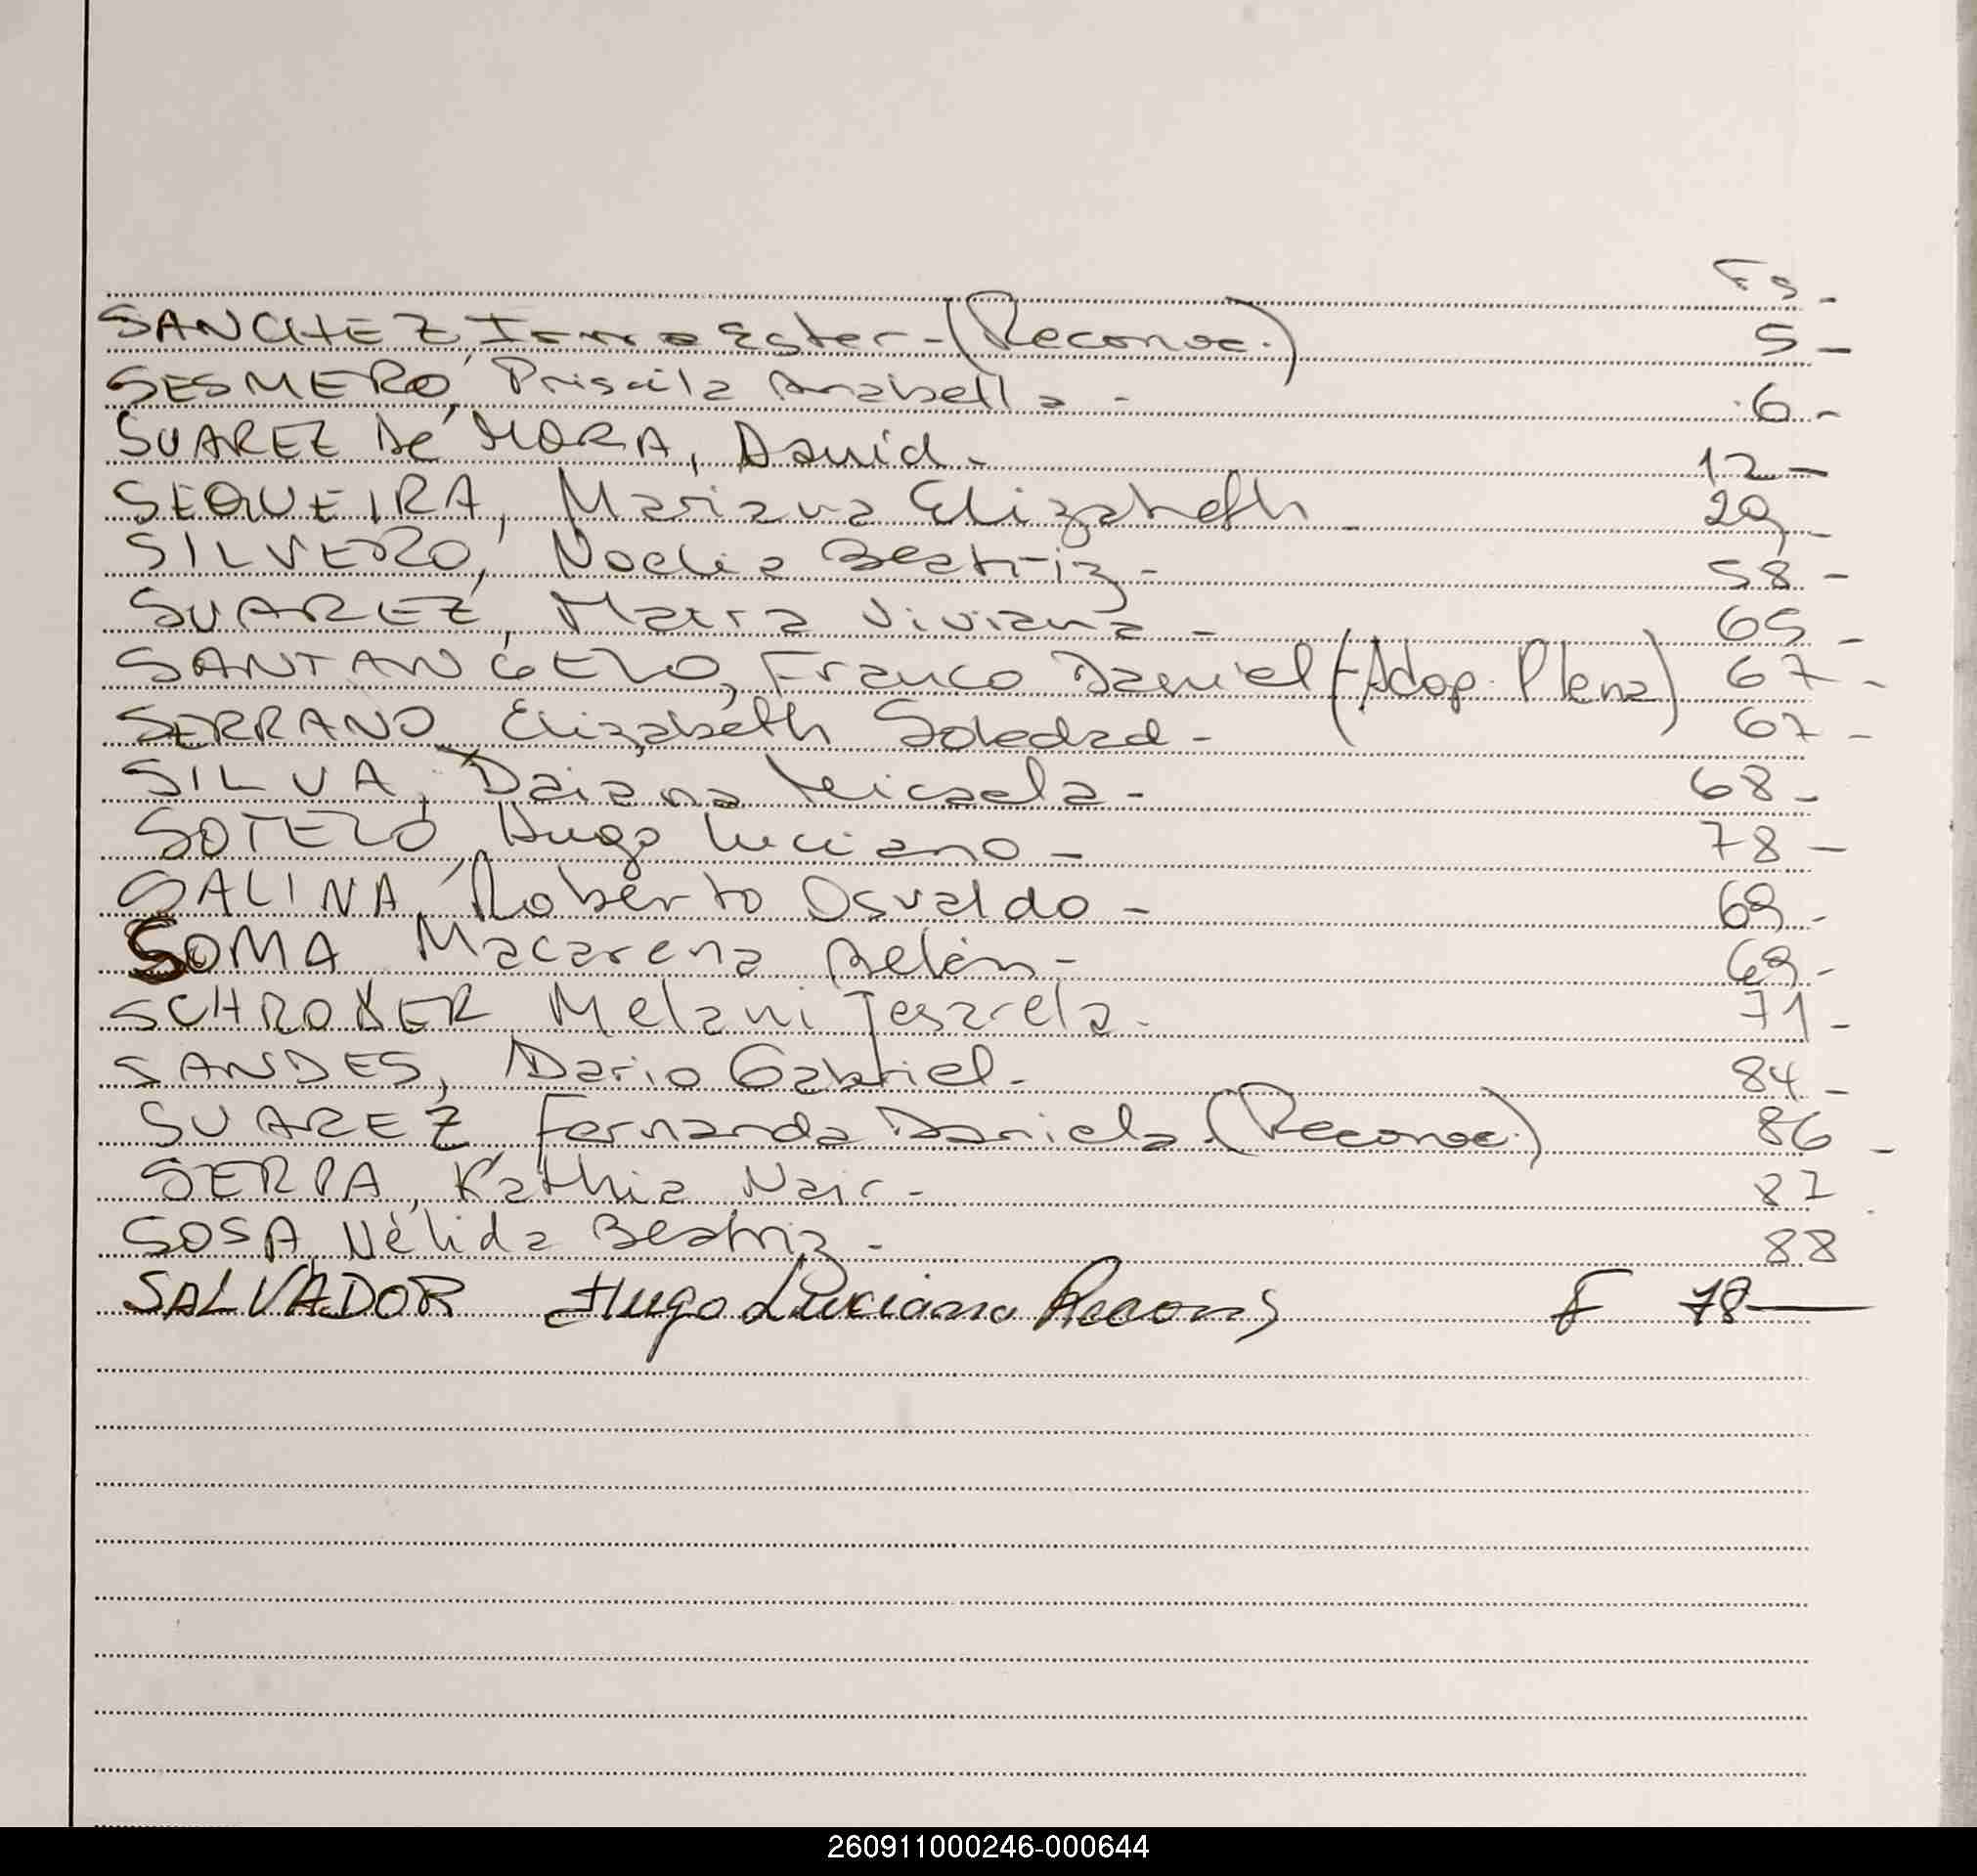 Fs-
SANCHEZ, Irma Ester-(Reconoc.) 5-
SESMERO, Priscila Anabella- 6-
SUAREZ De MORA, David- 12-
SEQUEIRA, Mariana Elizabeth- 29-
SILVERO, Noelia Beatriz- 58-
SUAREZ, Maira Viviana- 65-
SANTANGELO, Franco Daniel (Adop. Plena) 67-
SERRANO, Elizabeth Soledad- 67-
SILVA, Daiana Micaela- 68-
SOTELO, Hugo Luciano- 78-
SALINA, Roberto Osvaldo- 69-
SOMA Macarena Belén- 69-
SCHRODER, Melani 71-
SANDES, Dario Gabriel- 84-
SUAREZ, Fernanda Daniela.(Reconoc.) 86-
SERPA, Kathia Nair- 87
SOSA, Nélida Beatriz- 88
SALVADOR Hugo Luciano F 78-
260911000246-000644